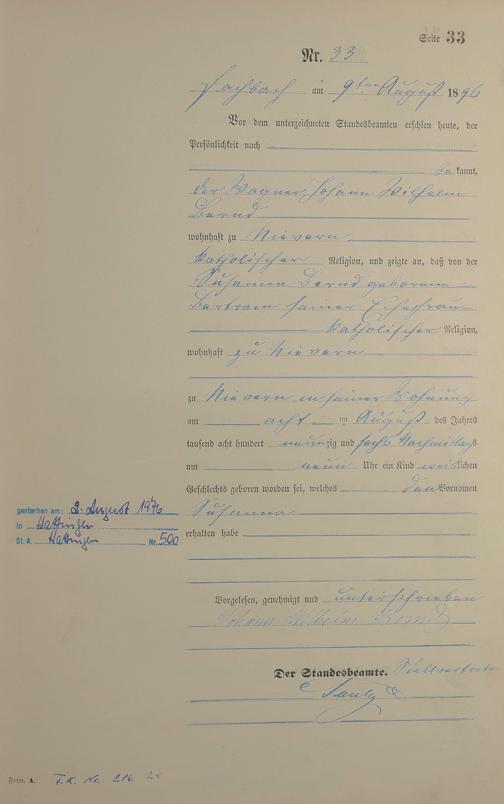 Seite 33
Nr. 33
Fachbach am 9ten August 1896
Vor dem unterzeichneten Standesbeamten erschien heute, der
Persönlichkeit nach
be kannt,
der Wagner Johann Wilhelm
Bernd
wohnhaft zu Nievern
katholischer Religion, und zeigte an, daß von der
Susanna Bernd geborene
Bertram seiner Ehefrau
katholischer Religion,
wohnhaft zu Nievern
zu Nievern in seiner Wohnung
am acht ten August des Jahres
tausend acht hundert neunzig und sechs Nachmittags
um neun Uhr ein Kind weiblichen
Geschlechts geboren worden sei, welches den Vornamen
Susanna
erhalten habe.
gestorben am: 2. August 1976
in Hattingen
St. A. Hattingen Nr. 500
Vorgelesen, genehmigt und unterschrieben
Johann Wilhelm Bernd
Der Standesbeamte.
Form. A.